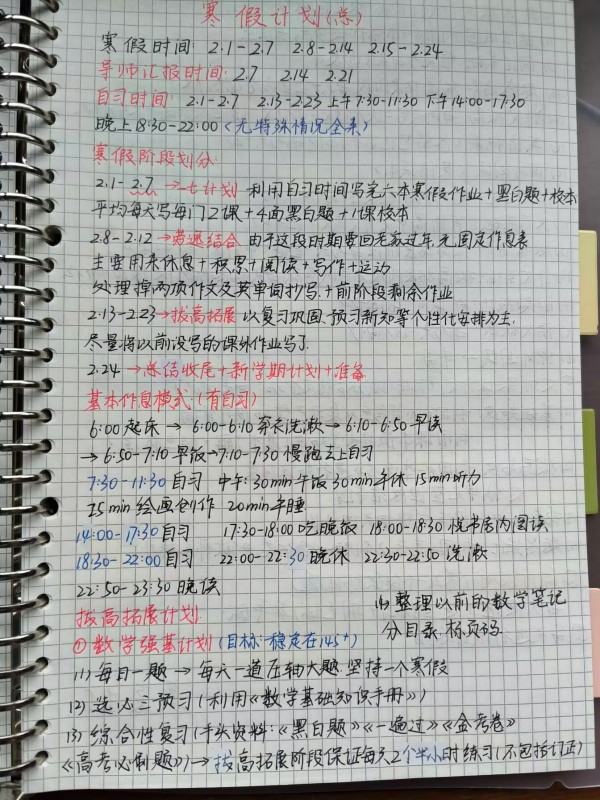 寒假计划(总)
寒假时间: 2.1-2.7 2.8-2.14 2.15-2.24
导师汇报时间: 2.7 2.14 2.21
自习时间: 2.1-2.7 2.13-2.23 上午7:30-11:30 下午14:00-17:30
晚上18:30-22:00(无特殊情况全杀)
寒假阶段划分:
2.1-2.7→七计划 利用自习时间写完六本寒假作业+黑白题+校本
平均每天写每门2课+4面黑白题+1课校本
2.8-2.12→劳逸结合 由于这段时期要回老家过年,无固定作息表
主要用来休息+积累+阅读+写作+运动
处理掉两项作文及英单词抄写,+前阶段剩余作业
2.13-2.23→拔高拓展 以复习巩固、预习新知等个性化安排为主.
尽量将以前没写的课外作业写了.
2.24→总结收尾+新学期计划+准备
基本作息模式:(有自习)
6:00起床→6:00-6:10穿衣洗漱→6:10-6:50早读
→6:50-7:10早饭→7:10-7:30慢跑去上自习
7:30-11:30自习 中午:30min午饭 30min午休 15min听力
15min绘画创作 20min午睡
14:00-17:30自习 17:30-18:00吃晚饭 18:00-18:30悦书房内阅读
18:30-22:00自习 22:00-22:30晚休 22:30-22:50洗漱
22:50-23:30晚读
拔高拓展计划
①数学强基计划(目标:稳定在145+)
(1)每日一题→每天一道压轴大题.坚持一个寒假
(2)选必三预习(利用《数学基础知识手册》)
(3)综合性复习(手头资料:《黑白题》《一遍过》《金考卷》
《高考必刷题》)→拔高拓展阶段保证每天2个半小时练习(不包括订正)
(4)整理以前的数学笔记
分目录.标页码.